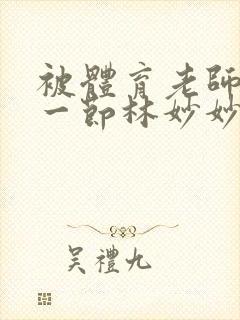 被體育老師
一節林妙妙
吴禮九